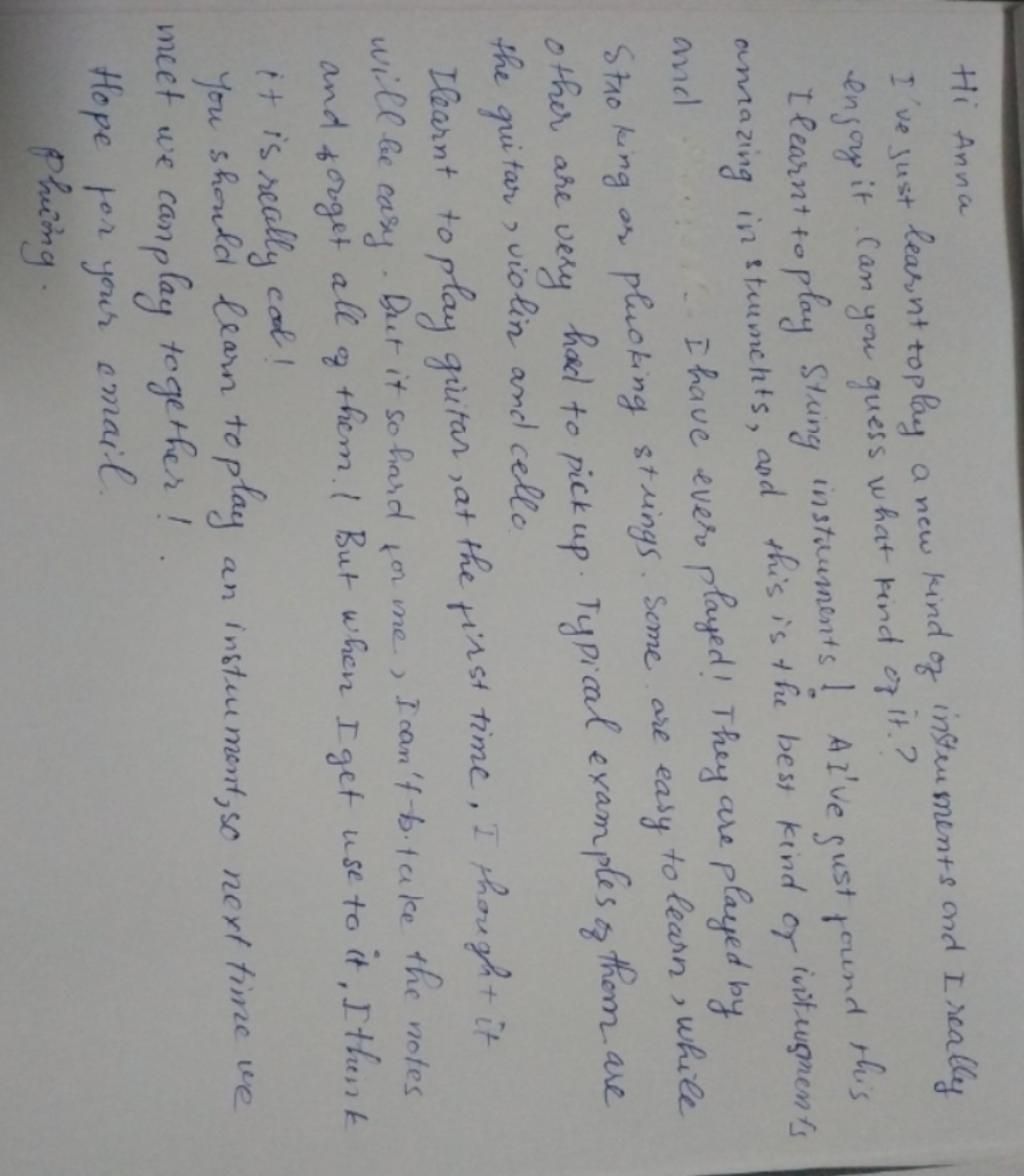 Hi Anna
I've just learnt to play a new kind of instruments and I really
enjoy it. Can you guess what kind of it.?
I learnt to play String instruments! I've just found this
amazing instruments, and this is the best kind of instruments
and I have ever played! They are played by
Stroking or plucking strings. Some are easy to learn, while
other are very had to pick up. Typical examples of them are
the guitar, violin and cello.
I learnt to play guitar, at the first time, I thought it
will be easy. But it so hard for me, I can't take the notes
and forget all of them! But when I get use to it, I think
it is really cool!
You should learn to play an instrument, so next time we
meet we can play together!
Hope for your email.
Phương.